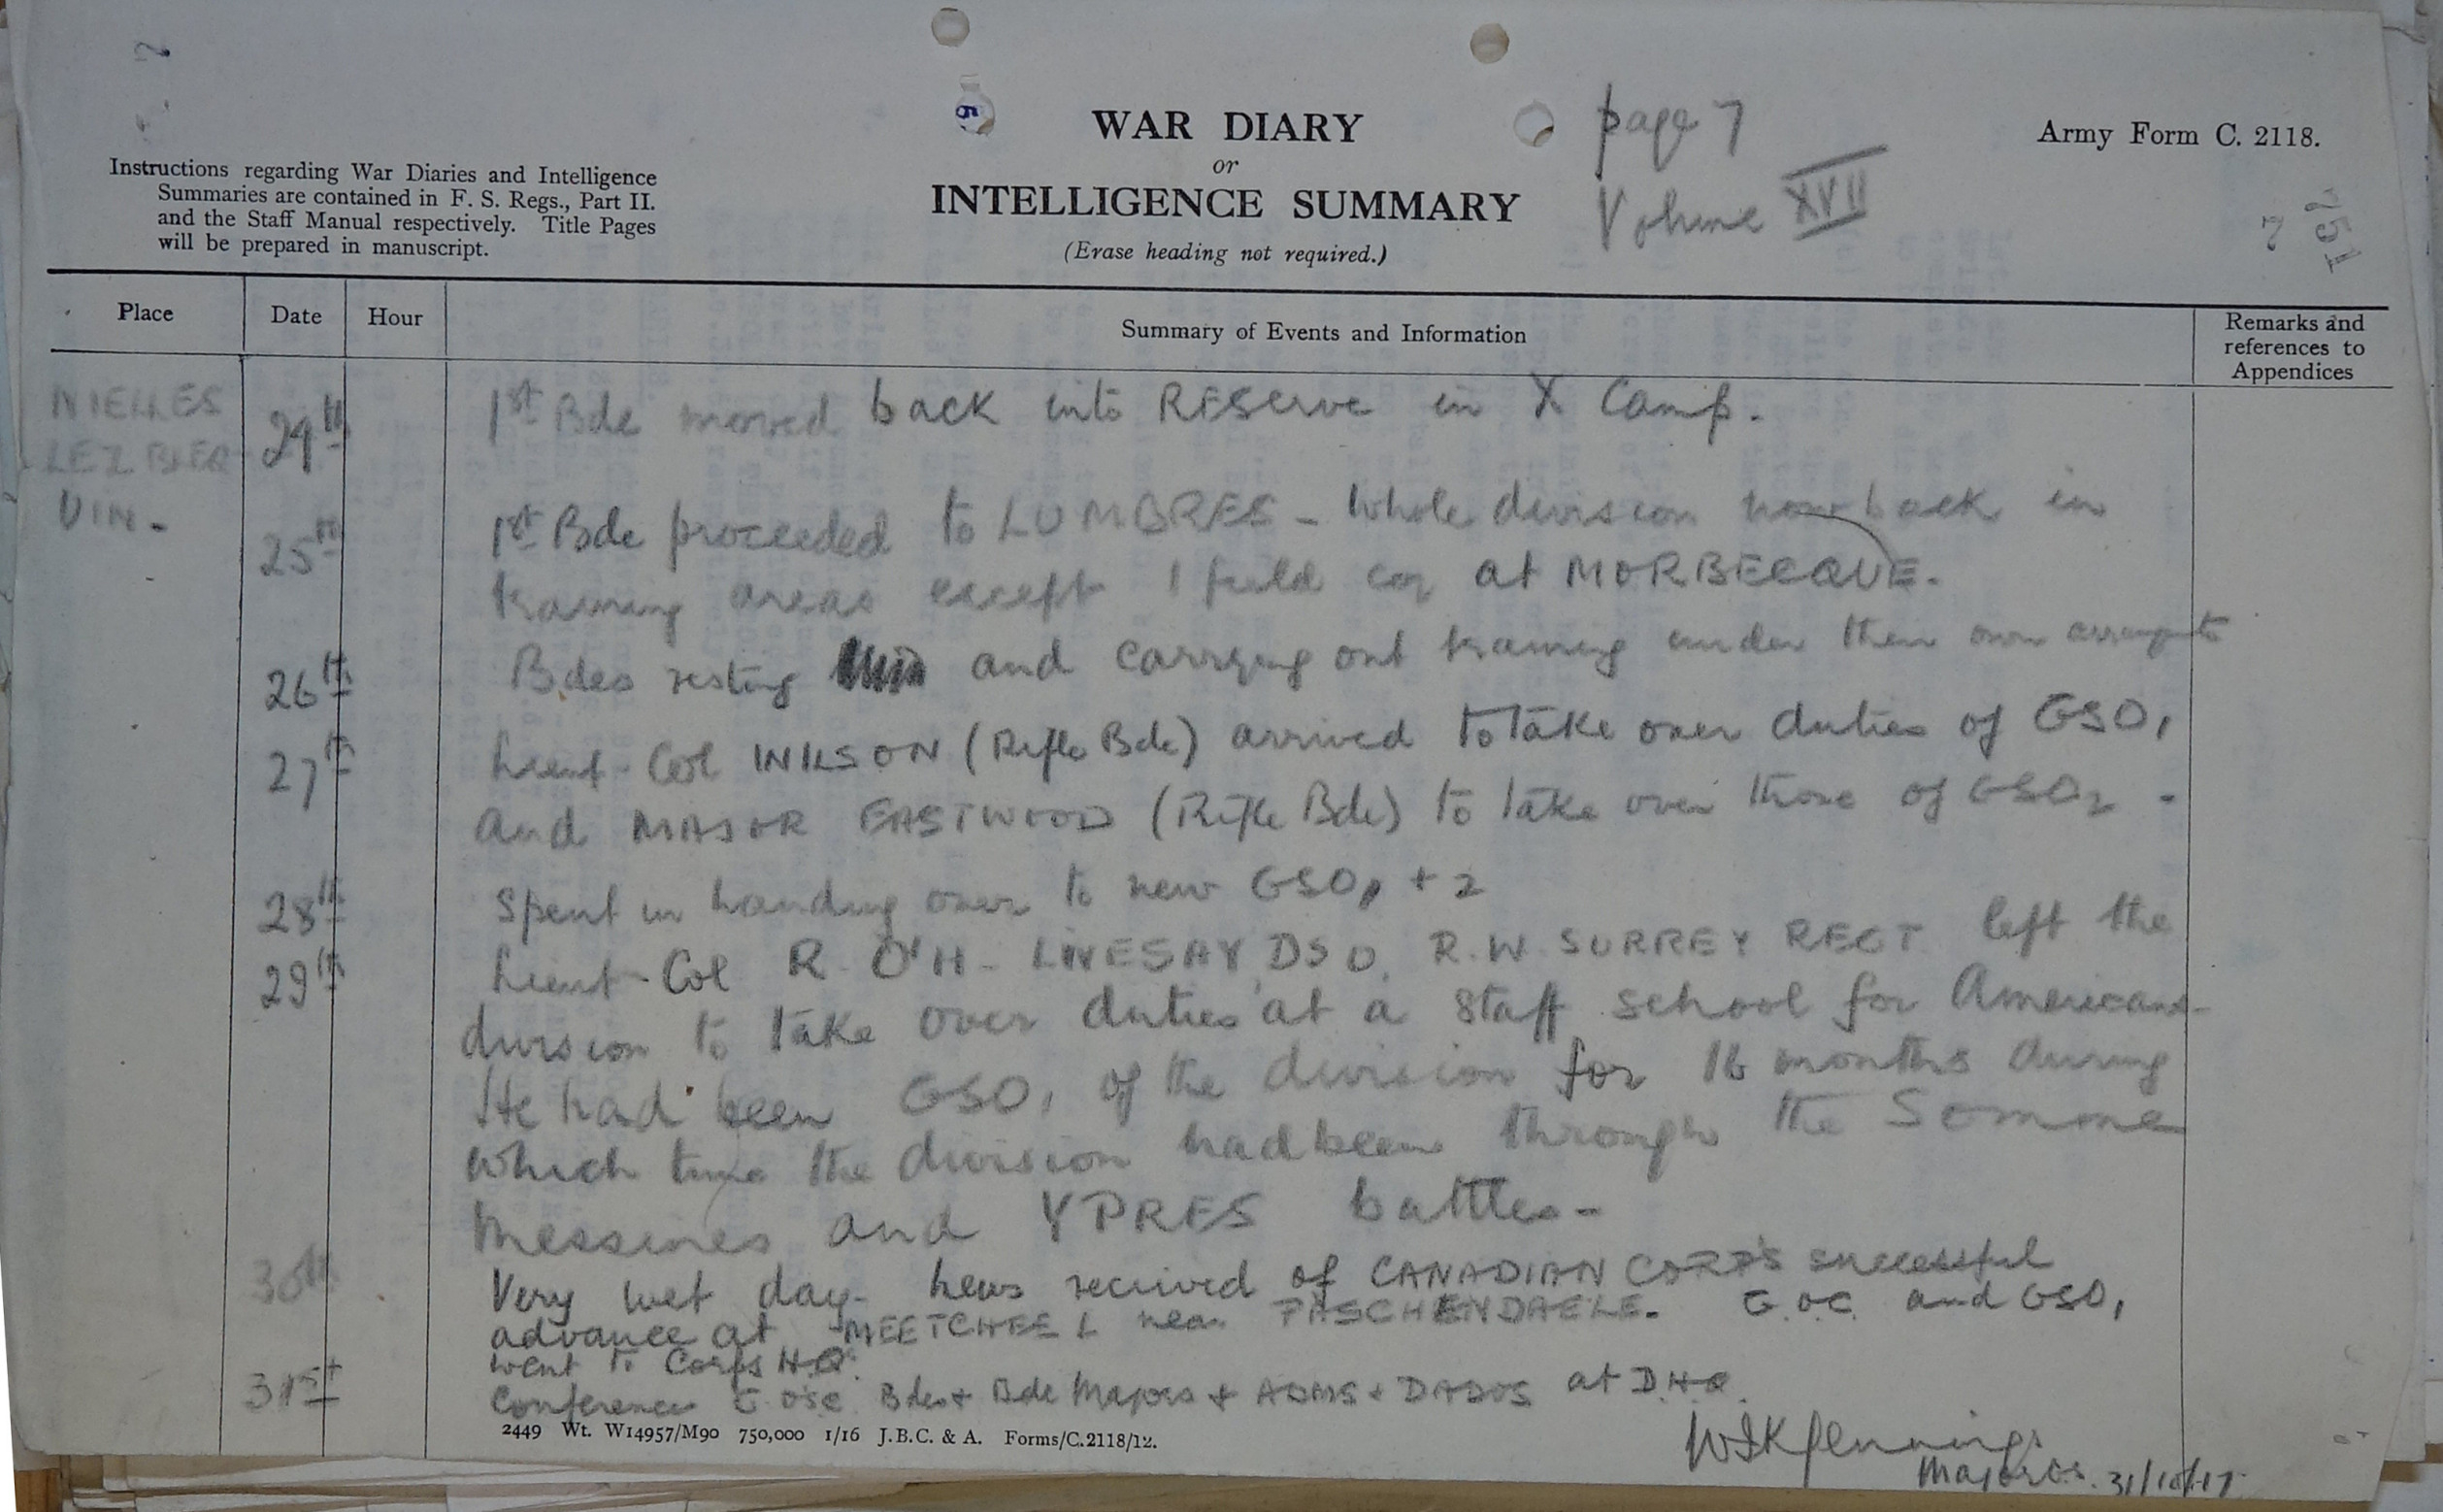 page 7
WAR DIARY
Army Form C. 2118.
or
Instructions regarding War Diaries and Intelligence
Summaries are contained in F. S. Regs., Part II.
and the Staff Manual respectively. Title Pages
will be prepared in manuscript.
INTELLIGENCE SUMMARY
Volume XVII
(Erase heading not required.)
Place Date Hour Summary of Events and Information Remarks and references to Appendices
NIELLES
LEZ BLEQ
UIN.
24th 1st Bde moved back into RESERVE in X Camp.
25th 1st Bde proceeded to LUMBRES - Whole division now back in
training areas except 1 field coy at MORBECQUE.
26th Bdes resting and carrying out training under their own arrangts
27th Lieut-Col WILSON (Rifle Bde) arrived to take over duties of GSO1
and MAJOR EASTWOOD (Rifle Bde) to take over those of GSO2 -
28th Spent in handing over to new GSO1 + 2
29th Lieut-Col R. O'H. LIVESAY, DSO, R.W. SURREY REGT left the
division to take over duties at a staff school for Americans.
He had been GSO1 of the division for 16 months during
which time the division had been through the Somme
Messines and YPRES battles -
30th Very wet day. News received of CANADIAN CORPS successful
advance at MEETCHEEL near PASCHENDAELE. G.O.C. and GSO1
went to Corps HQ.
31st Conference G.O's.C. Bdes + Bde Majors + ADMS + DADOS at D.H.Q.
2449 Wt. W14957/M90 750,000 1/16 J.B.C. & A. Forms/C.2118/12.
Major 31/10/17